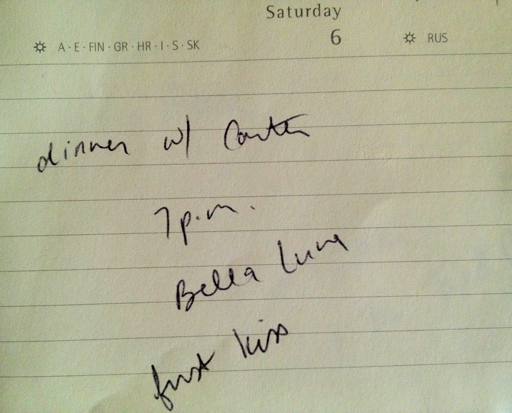 Saturday
6
A · E · FIN · GR · HR · I · S · SK
RUS
dinner w/
7p.m.
Bella Luna
first kiss